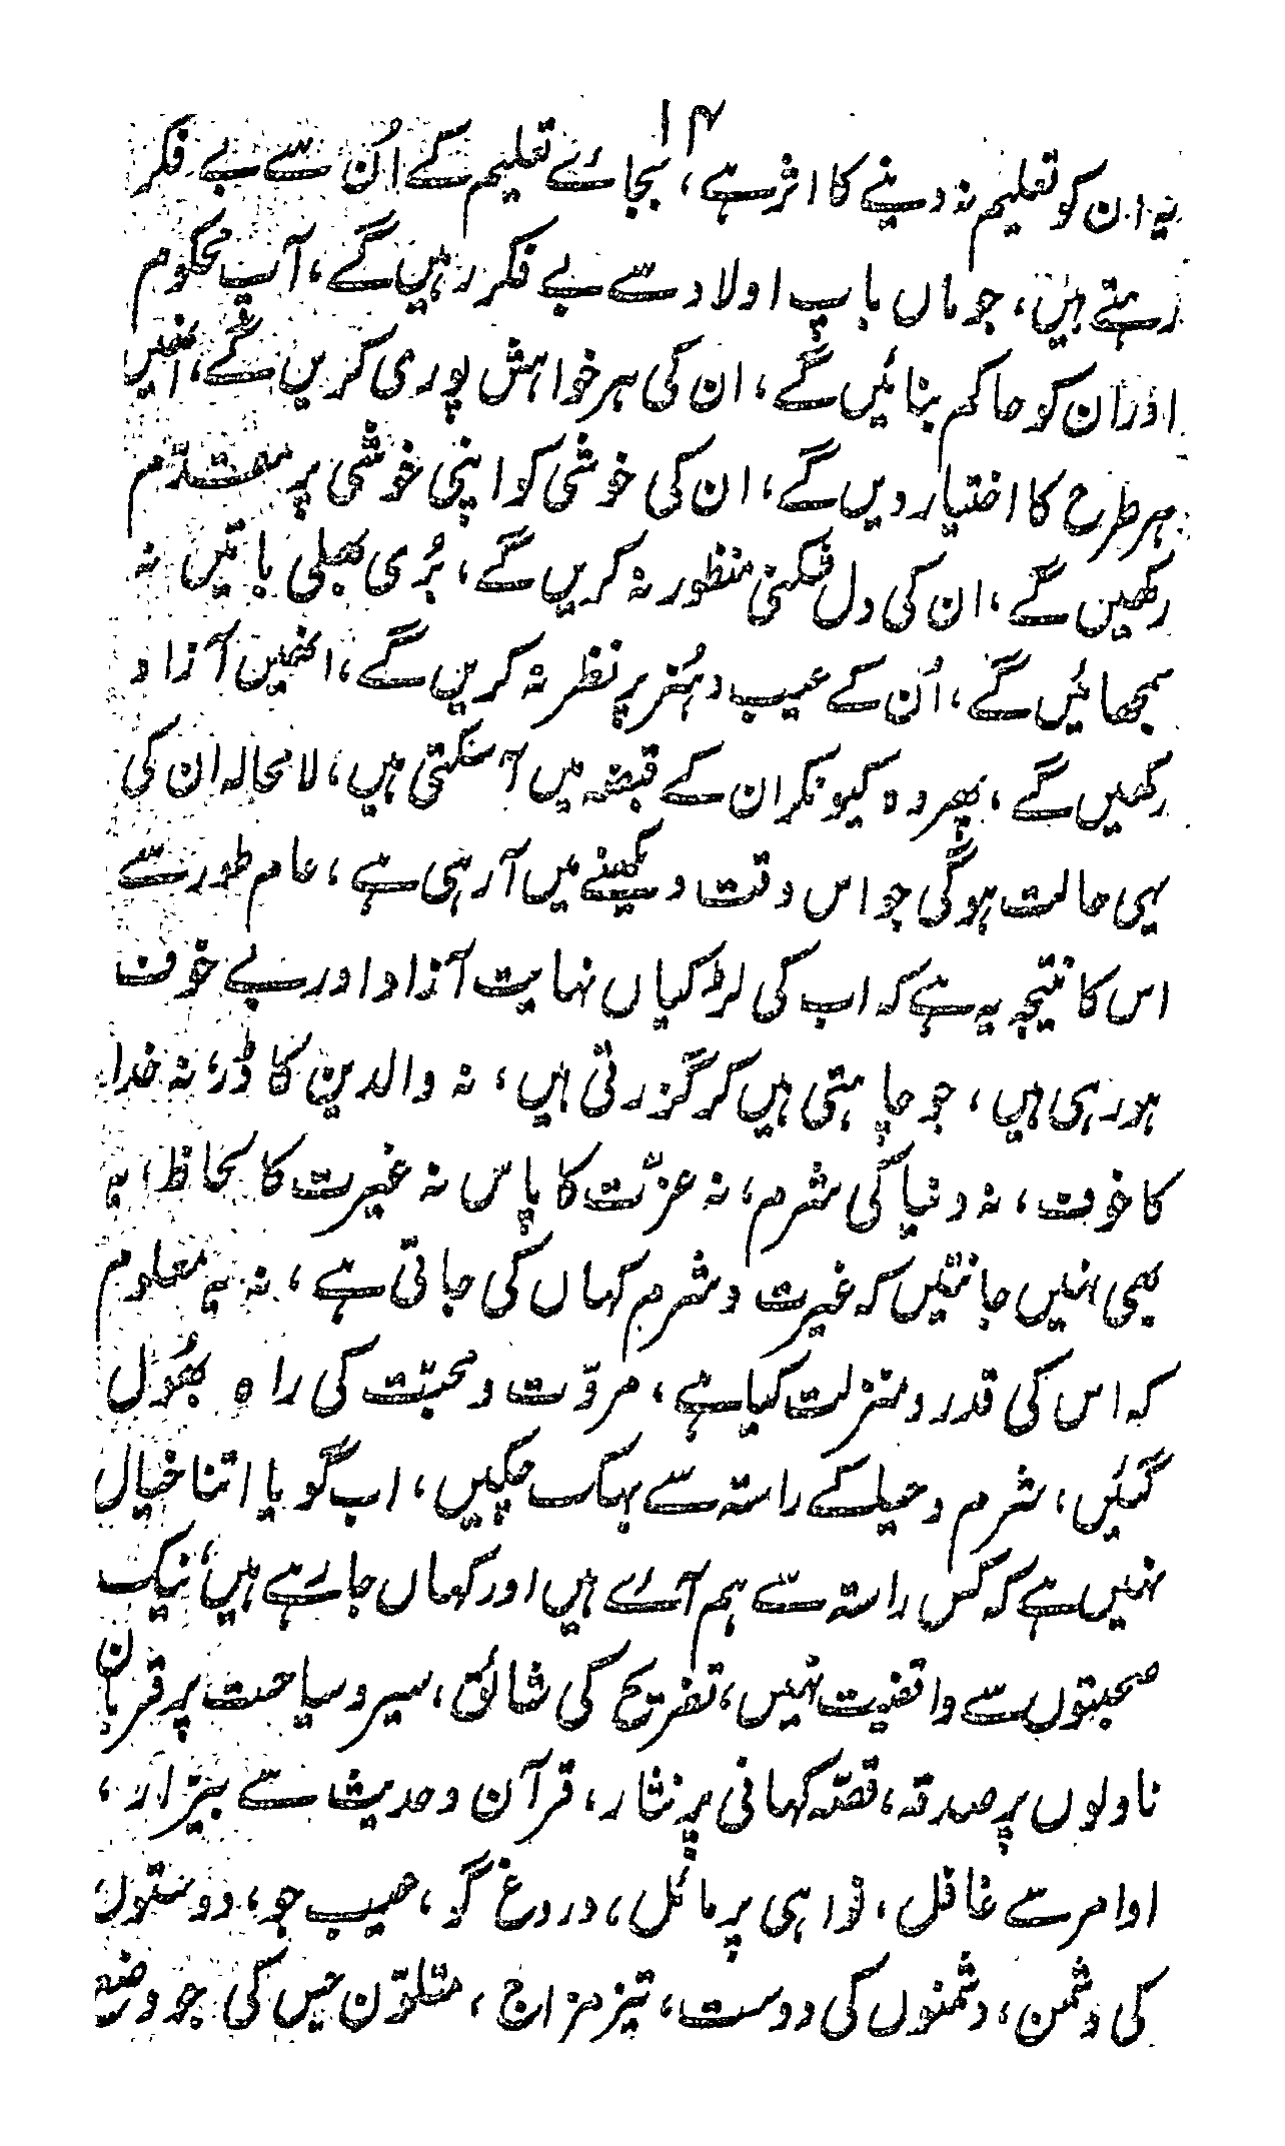 ۱۴
یہ ان کو تعلیم نہ دینے کا اثر ہے، بجائے تعلیم کے اُن سے بے فکر
رہتے ہیں، جو ماں باپ اولاد سے بے فکر رہیں گے، آپ محکوم
اور ان کو حاکم بنائیں گے، ان کی ہر خواہش پوری کریں گے، انھیں
ہر طرح کا اختیار دیں گے، ان کی خوشی کو اپنی خوشی پر مقدّم
رکھیں گے، ان کی دل شکنی منظور نہ کریں گے، بُری بھلی باتیں نہ
سمجھائیں گے، اُن کے عیب و ہُنر پر نظر نہ کریں گے، انھیں آزاد
رکھیں گے، پھر وہ کیونکر ان کے قبضہ میں آسکتی ہیں، لامحالہ ان کی
یہی حالت ہوگی جو اس وقت دیکھنے میں آرہی ہے، عام طور سے
اس کا نتیجہ یہ ہے کہ اب کی لڑکیاں نہایت آزاد اور بے خوف
ہو رہی ہیں، جو چاہتی ہیں کر گزرتی ہیں، نہ والدین کا ڈر، نہ خدا
کا خوف، نہ دنیا کی شرم، نہ عزّت کا پاس نہ غیرت کا لحاظ، یہ
بھی نہیں جانتیں کہ غیرت و شرم کہاں کی جاتی ہے، نہ یہ معلوم
کہ اس کی قدر و منزلت کیا ہے، مروّت و محبّت کی راہ بھُول
گئیں، شرم و حیا کے راستہ سے بہک چکیں، اب گویا اتنا خیال
نہیں ہے کہ کس راستہ سے ہم آئے ہیں اور کہاں جارہے ہیں، نیک
صحبتوں سے واقفیت نہیں، تفریح کی شائق، سیر و سیاحت پر قربان
ناولوں پر صدقہ، قصّہ کہانی پر نثار، قرآن و حدیث سے بیزار،
اوامر سے غافل، نواہی پر مائل، دروغ گو، عیب جو، دوستوں
کی دشمن، دشمنوں کی دوست، تیز مزاج، متلوّن جس کی جو وضع